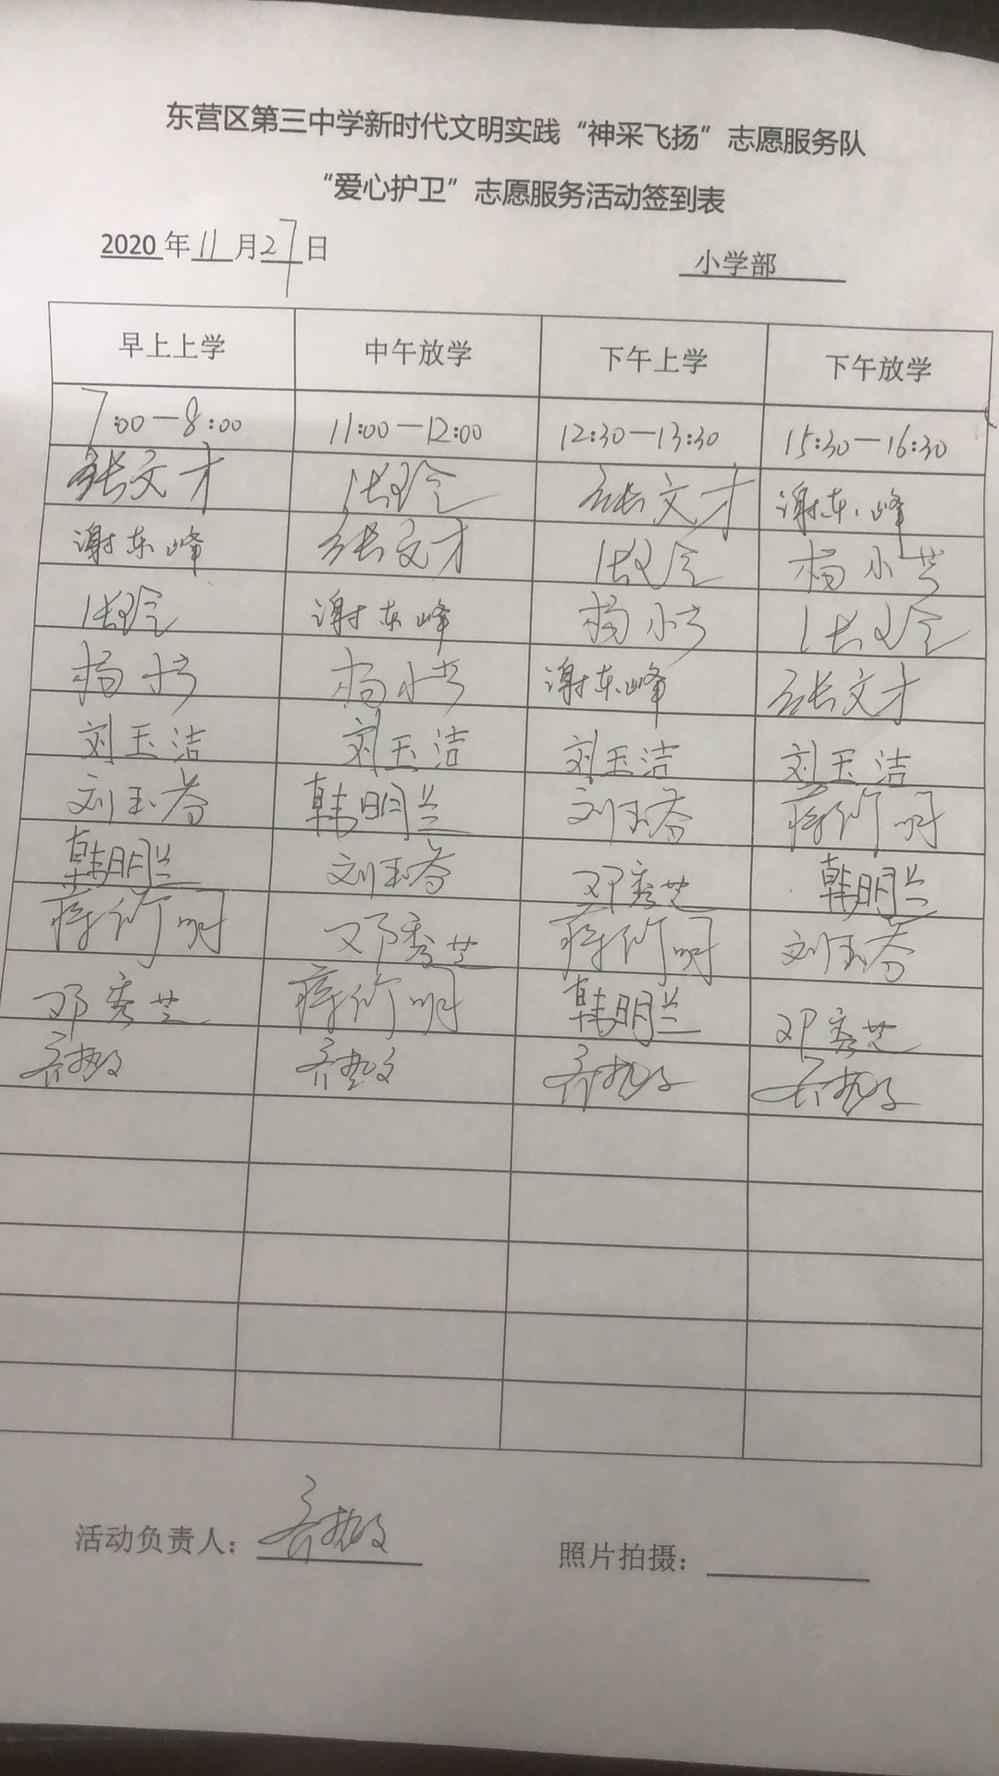 东营区第三中学新时代文明实践“神采飞扬”志愿服务队
“爱心护卫”志愿服务活动签到表
2020 年 11 月 27 日 小学部
早上上学 中午放学 下午上学 下午放学
7:00—8:00 11:00—12:00 12:30—13:30 15:30—16:30
张文才 张玲 张文才 谢东峰
谢东峰 张文才 张玲 杨小芳
张玲 谢东峰 杨小芳 张玲
杨小芳 杨小芳 谢东峰 张文才
刘玉洁 刘玉洁 刘玉洁 刘玉洁
刘玉芬 韩明兰 刘玉芬 蒋竹明
韩明兰 刘玉芬 邓秀芝 韩明兰
蒋竹明 邓秀芝 蒋竹明 刘玉芬
邓秀芝 蒋竹明 韩明兰 邓秀芝
活动负责人： 照片拍摄：